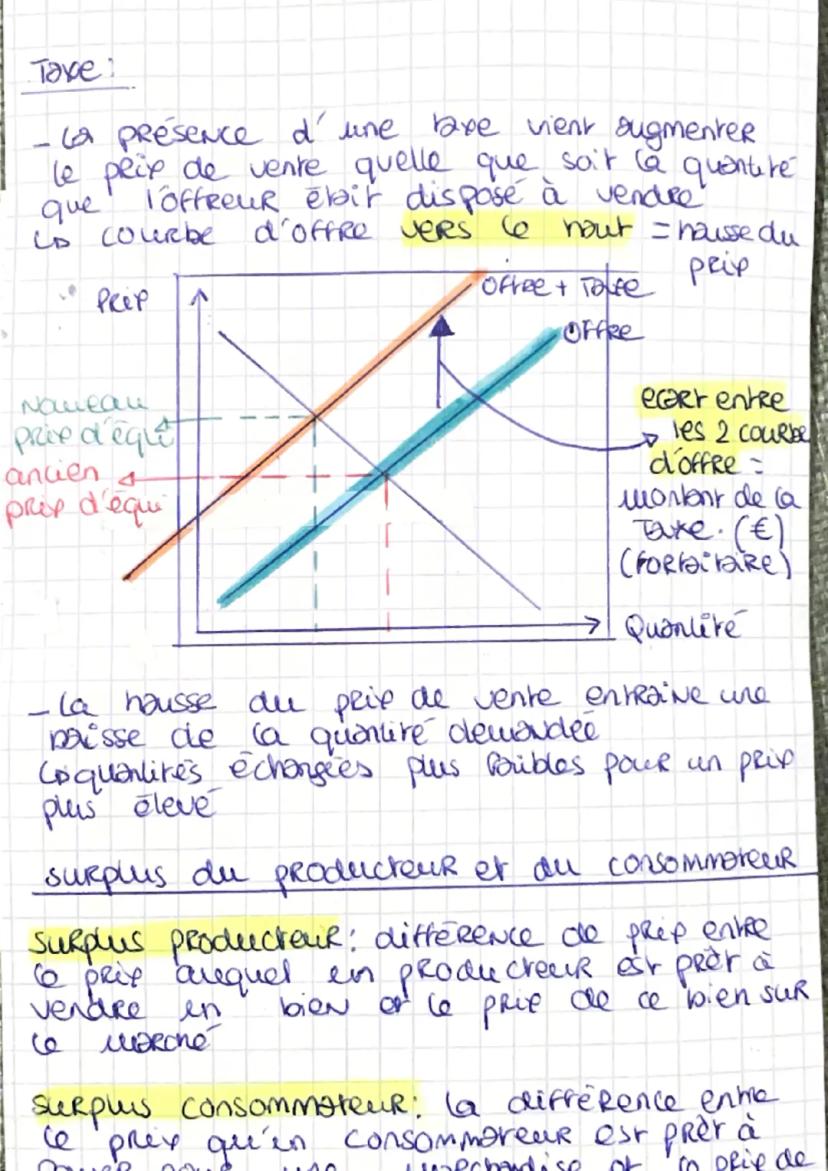 Taxe :
- la présence d'une taxe vient augmenter
le prix de vente quelle que soit la quantité
que l'offreur était disposé à vendre
↳ courbe d'offre vers le haut = hausse du
prix
Prix
Offre + Taxe
Offre
Nouveau
prix d'équi
ancien
prix d'équi
écart entre
les 2 courbe
d'offre =
montant de la
Taxe. (€)
(forfaitaire)
Quantité
- la hausse du prix de vente entraine une
baisse de la quantité demandée
↳ quantités échangées plus faibles pour un prix
plus élevé
surplus du producteur et du consommateur
surplus producteur : différence de prix entre
le prix auquel un producteur est prêt à
vendre un bien et le prix de ce bien sur
le marché
surplus consommateur : la différence entre
le prix qu'un consommateur est prêt à
payer pour une marchandise et le prix de